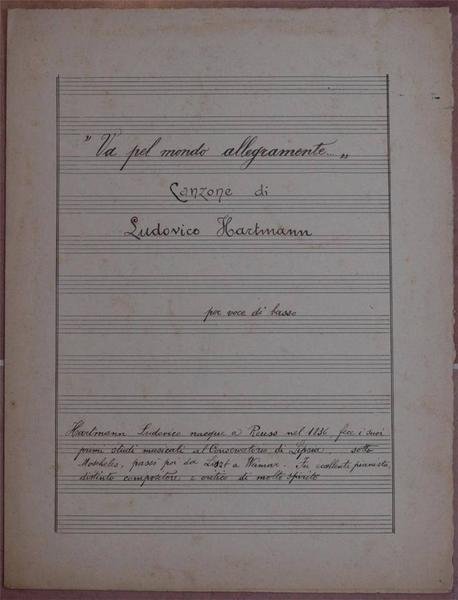 "Va pel mondo allegramente...„
Canzone di
Ludovico Hartmann
per voce di basso
Hartmann Ludovico nacque a Reuss nel 1836 fece i suoi
primi studi musicali al Conservatorio di Lipsia, sotto
Moscheles, passò poi da Liszt a Waimar. Fu eccellente pianista,
distinto compositore, e critico di molto spirito